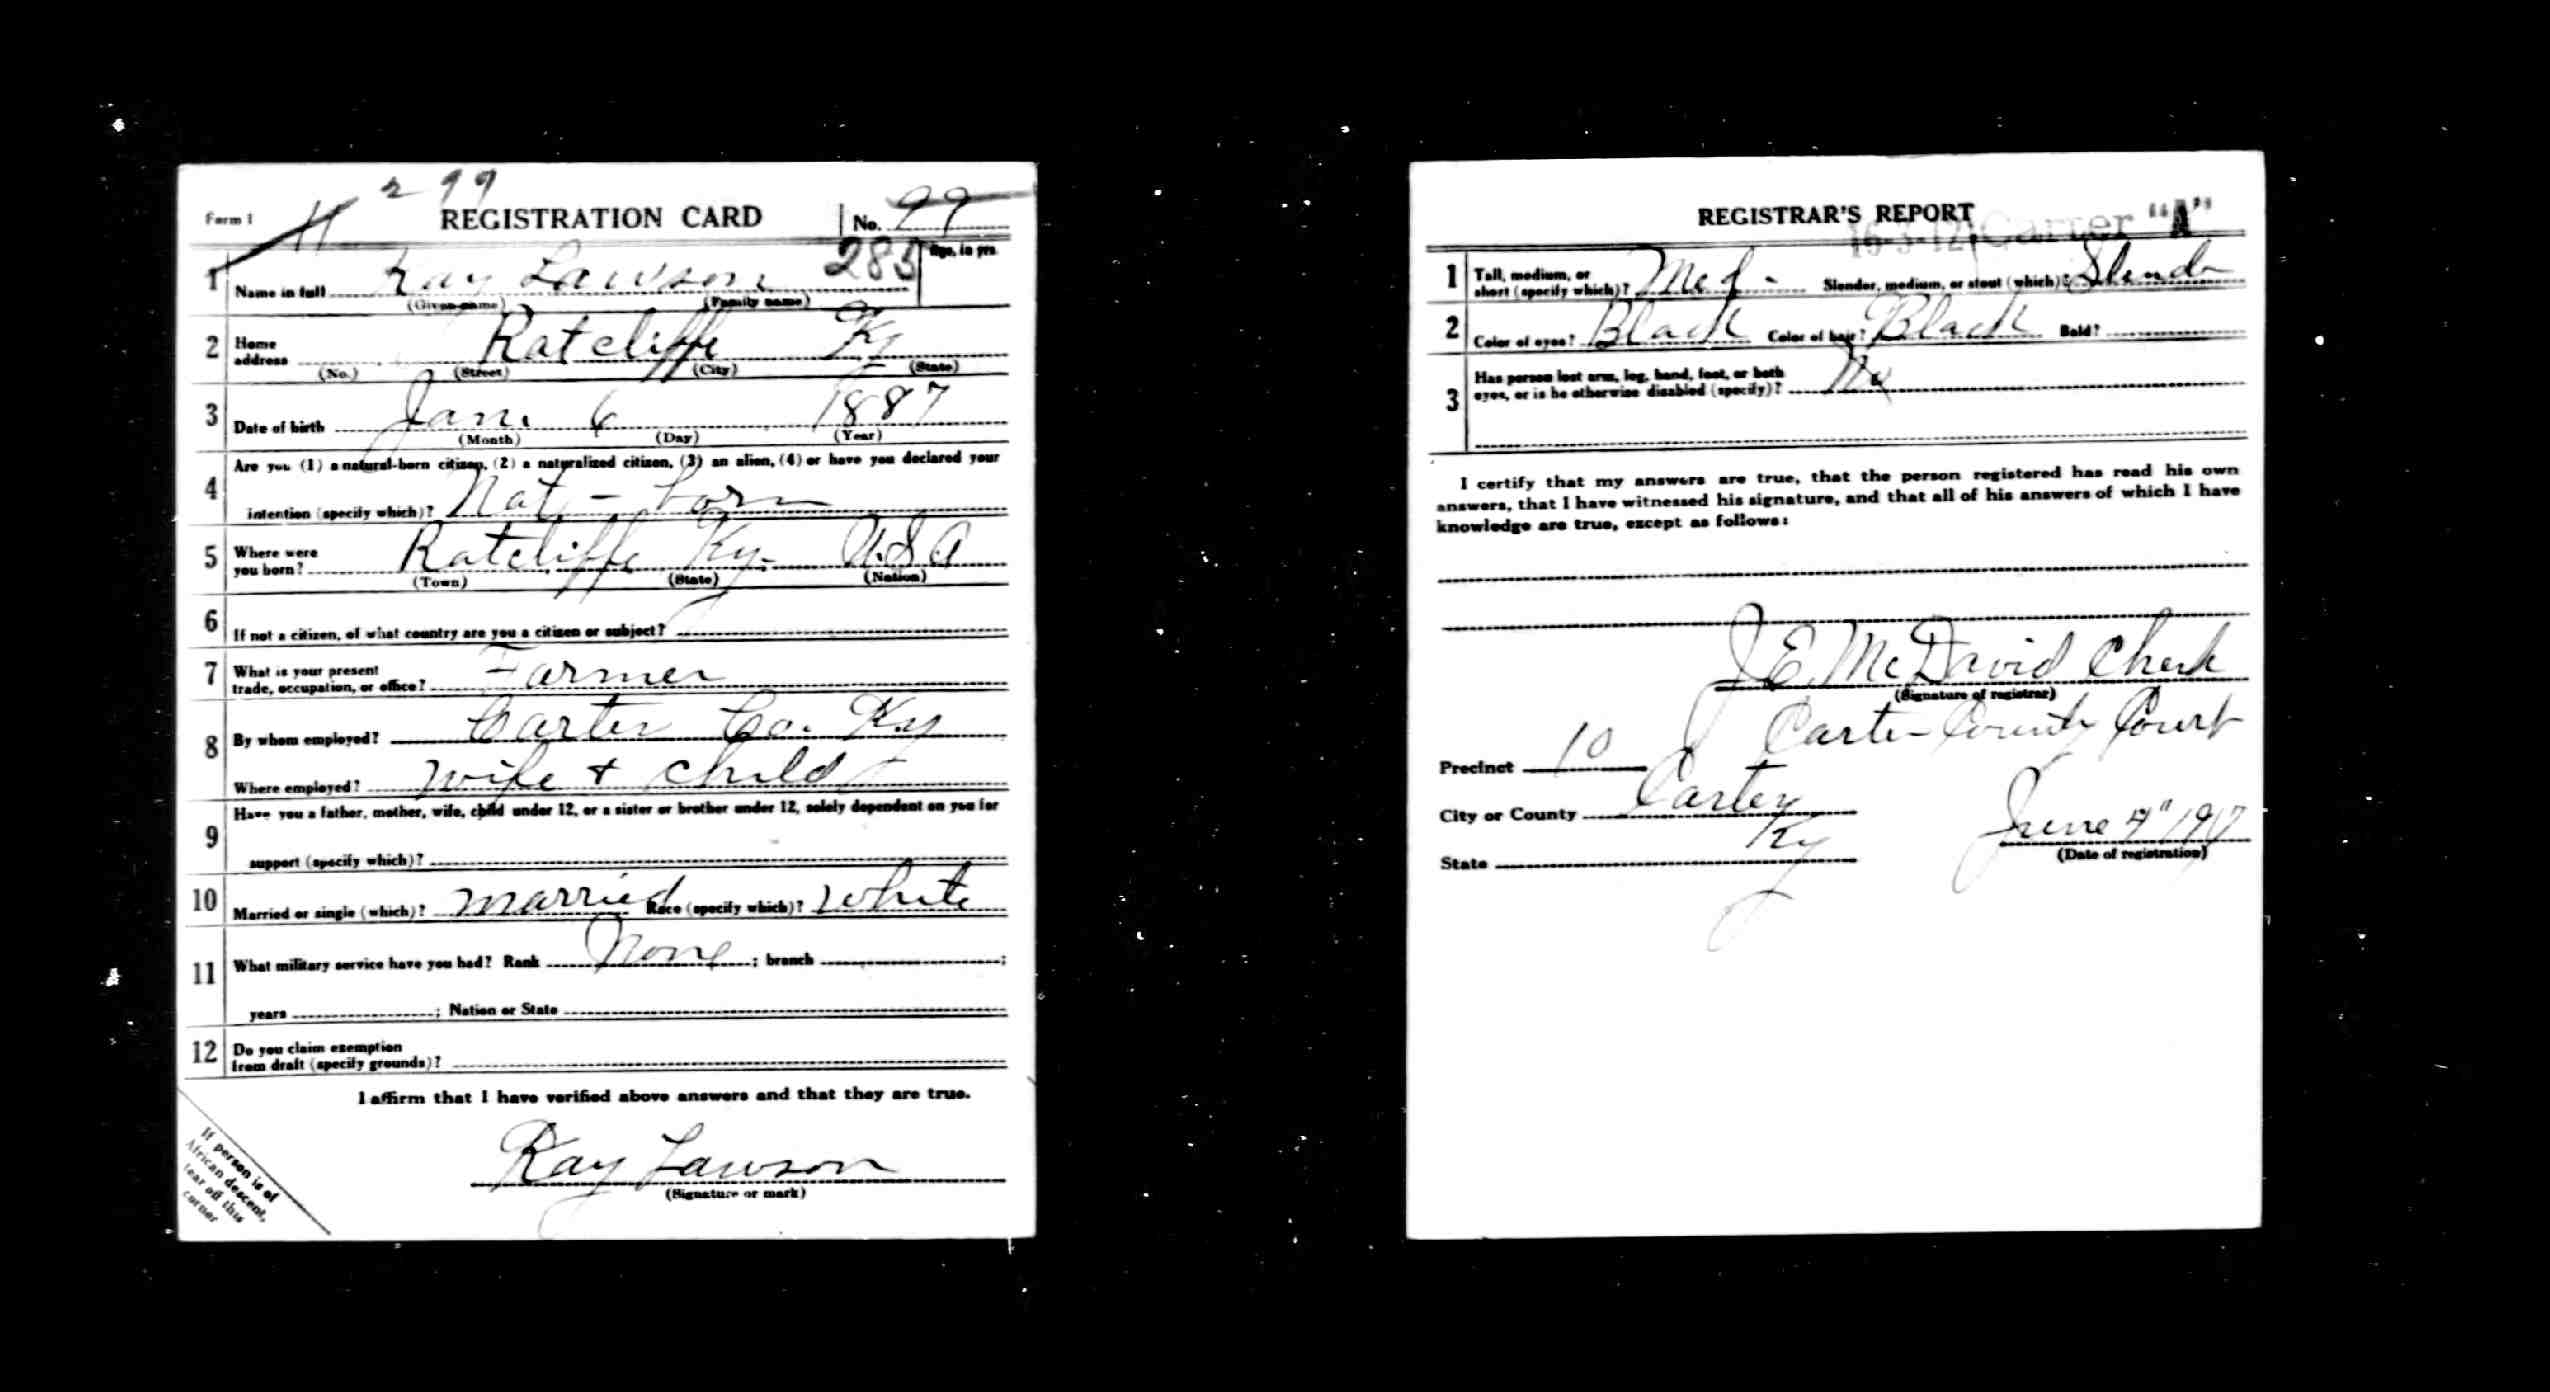 299
Form 1 REGISTRATION CARD No. 99
1 Name in full Ray Lawson 285 Age, in yrs.
(Given name) (Family name)
2 Home address Ratcliffe Ky
(No.) (Street) (City) (State)
3 Date of birth Jan. 6 1887
(Month) (Day) (Year)
4 Are you (1) a natural-born citizen, (2) a naturalized citizen, (3) an alien, (4) or have you declared your
intention (specify which)? Nat - born
5 Where were you born? Ratcliffe Ky- U.S.A
(Town) (State) (Nation)
6 If not a citizen, of what country are you a citizen or subject?
7 What is your present trade, occupation, or office? Farmer
8 By whom employed? Carter Co. Ky
Where employed? Wife + child
9 Have you a father, mother, wife, child under 12, or a sister or brother under 12, solely dependent on you for
support (specify which)?
10 Married or single (which)? married Race (specify which)? White
11 What military service have you had? Rank None ; branch ;
years ; Nation or State
12 Do you claim exemption from draft (specify grounds)?
I affirm that I have verified above answers and that they are true.
Ray Lawson
(Signature or mark)
If person is of
African descent,
tear off this
corner
REGISTRAR'S REPORT
Carter "A"
1 Tall, medium, or short (specify which)? Med- Slender, medium, or stout (which)? Slender
2 Color of eyes? Black Color of hair? Black Bald?
3 Has person lost arm, leg, hand, foot, or both
eyes, or is he otherwise disabled (specify)? No
I certify that my answers are true, that the person registered has read his own
answers, that I have witnessed his signature, and that all of his answers of which I have
knowledge are true, except as follows:
J E McDavid Clerk
(Signature of registrar)
Carter County Court
Precinct 10
City or County Carter
State Ky
June 1917
(Date of registration)